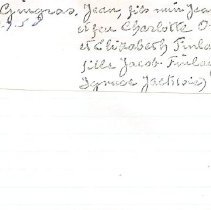 Gingras. Jean, fils min Jea
et feu Charlotte O
et Elizabeth Finla
fille Jacob Finlay